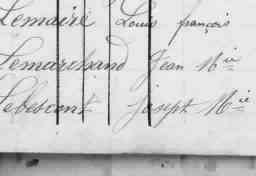 Lemaire Louis françois
Lemarchand Jean Mie
Lebescont Joseph Mie